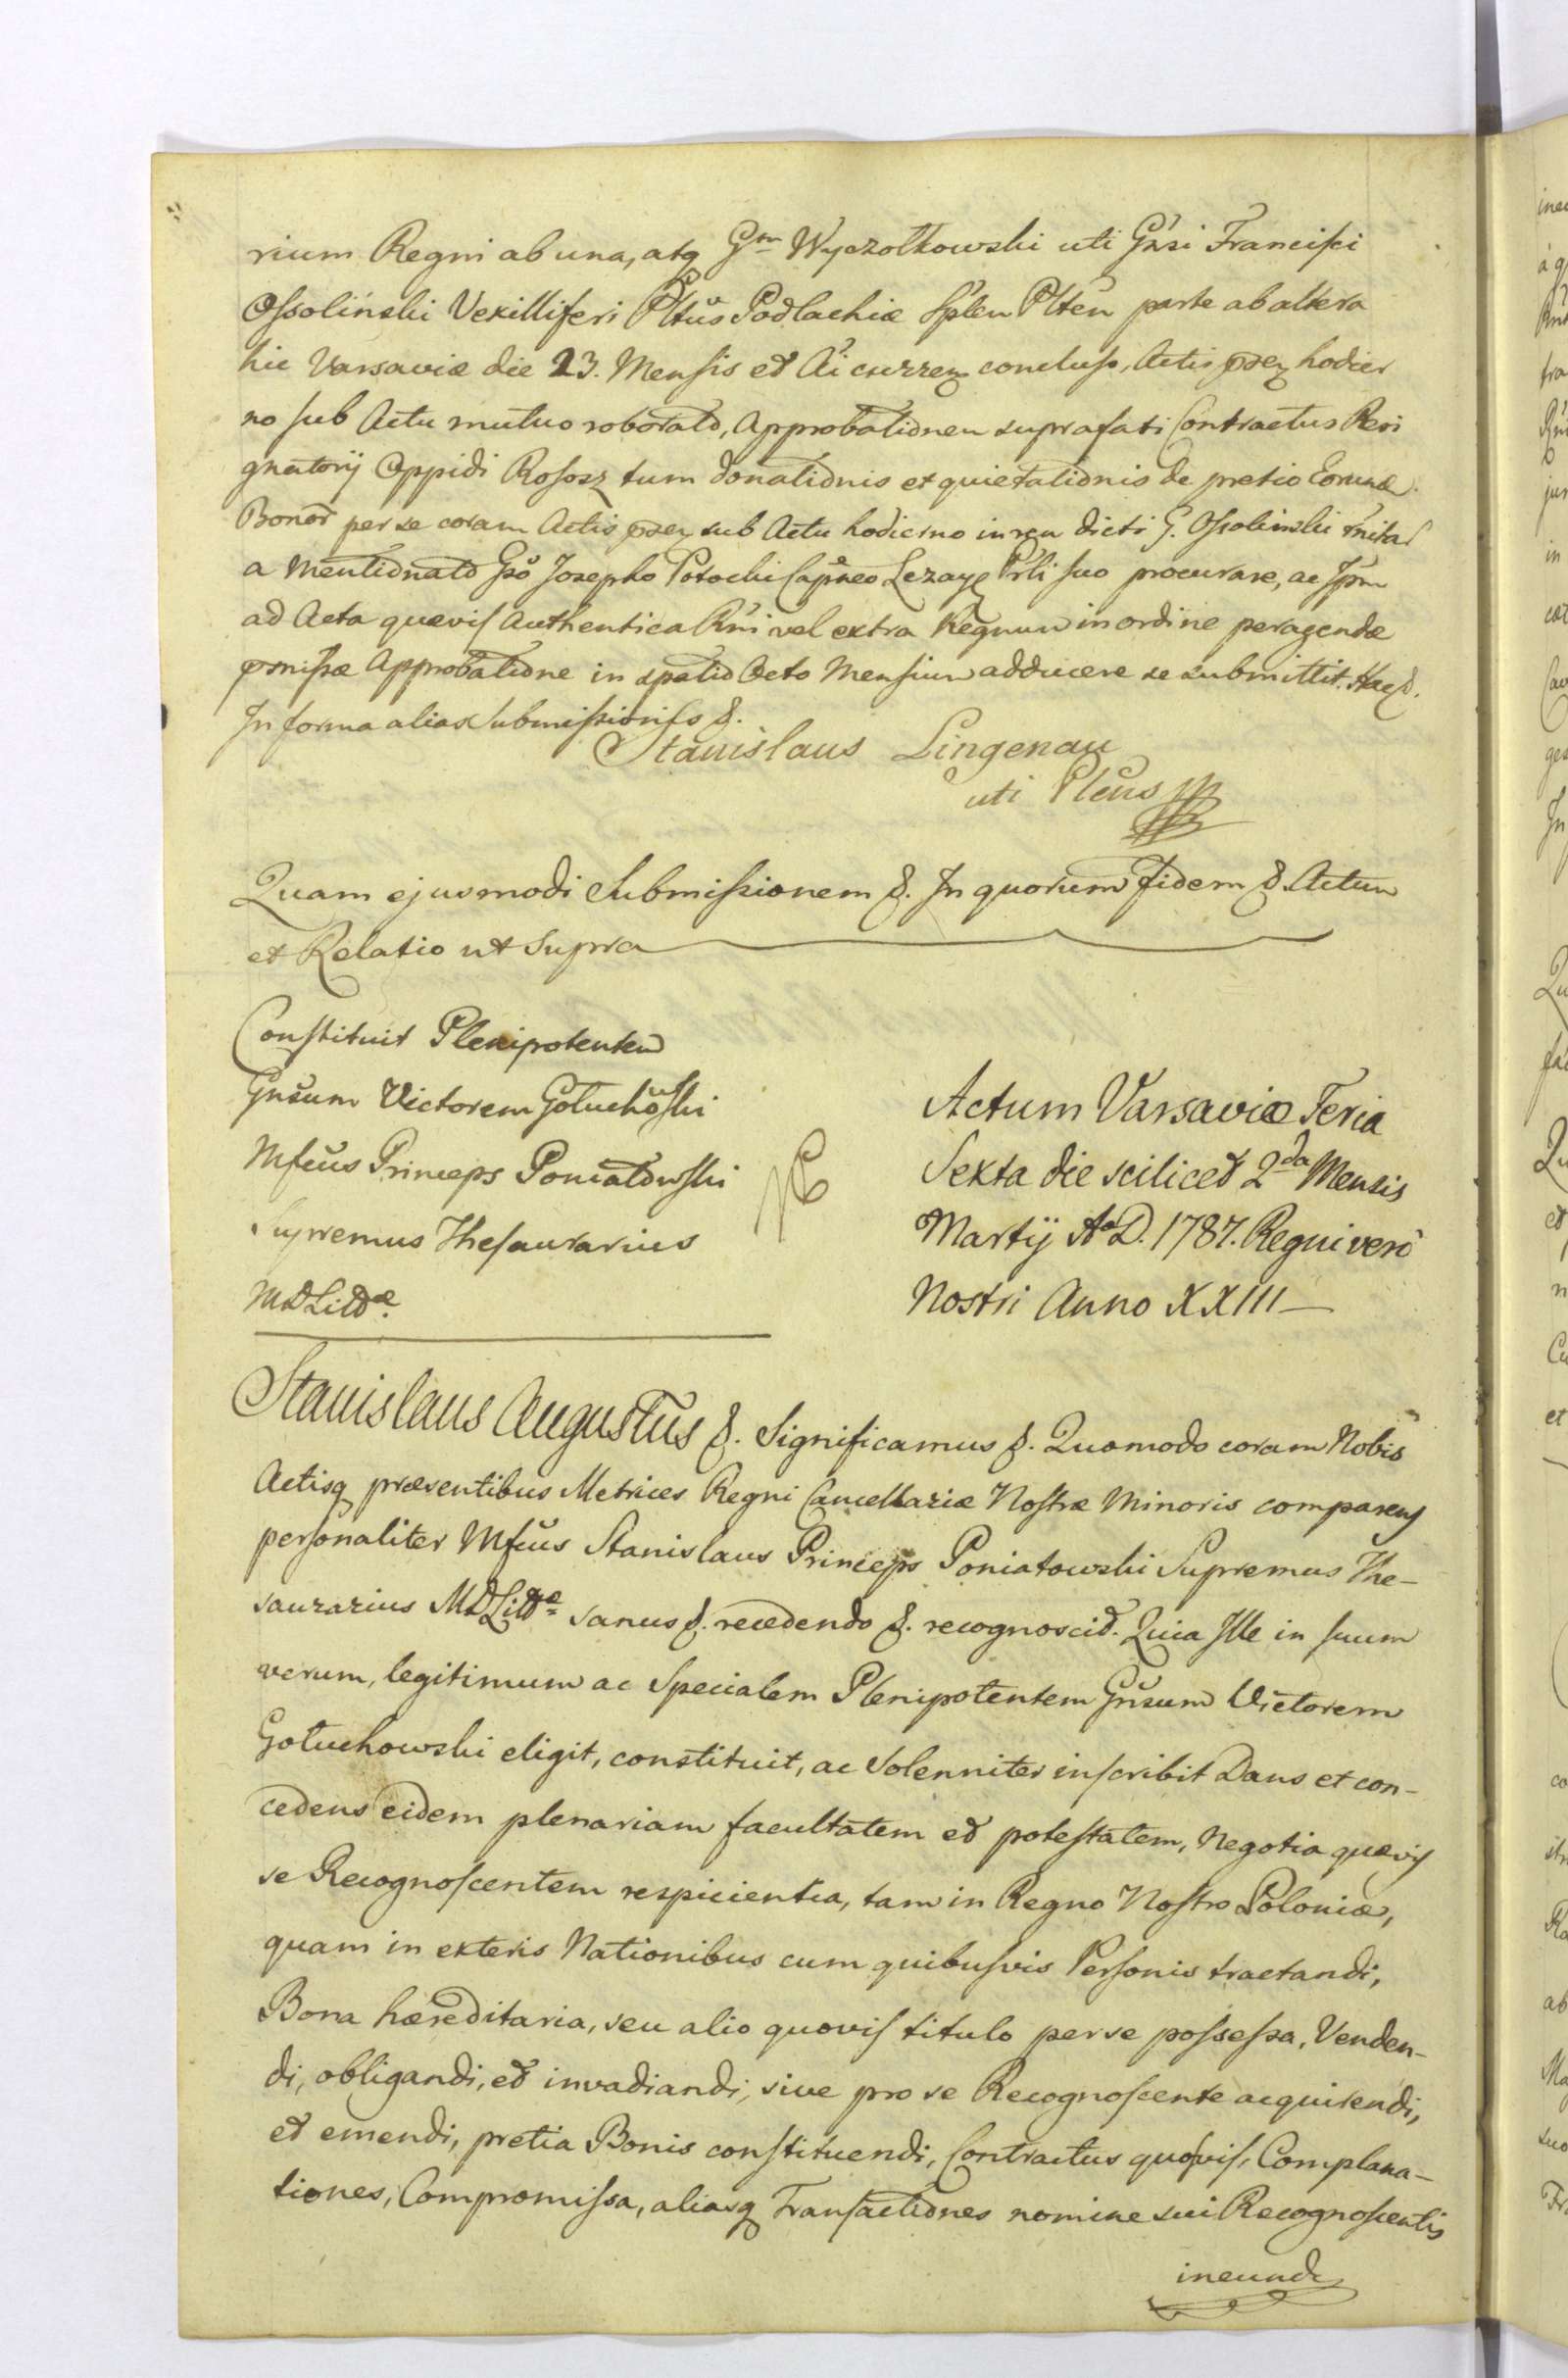 rium Regni ab una, atq Gm Wyczołkowski uti Gnsi Francisci
Ossolinski Vexilliferi Pltûs Podlachiæ Splen Plten parte ab altera
hic Varsaviæ die 23. Mensis et Ai curren conclusо, Actis psen hodier
no sub Actu mutuo roborato, Approbationem suprafati Contractus Resi
gnatorij Oppidi Rososz tum donationis et quietationis de pretio Eorund.
Bonor per se coram Actis psen sub Actu hodierno in rem dicti G. Ossolinski
a Mentionato Gso Josepho Potocki Capneo Lezay Prli suo procurare, ac Ipm
ad Acta quævis Authentica Rni vel extra Regnum in ordine peragendæ
pmissæ Approbatione in spatio Octo Mensium adducere se submittit. Hac &.
In forma alias Submissionis &.
Stanislaus Lingenau
uti Plens
Quam ejusmodi Submissionem &. In quorum fidem &. Actum
et Relatio ut Supra
Constituit Plenipotentem
Gnsum Victorem Gołuchowski
Mfcus Princeps Poniatowski
Supremus Thesaurarius
MDLittæ
Actum Varsaviæ Feria
Sexta die scilicet 2da Mensis
Martij Ao D. 1787. Regni vero
Nostri Anno XXIII
Stanislaus Augustus &. Significamus &. Quomodo coram Nobis
Actisq præsentibus Metrices Regni Cancellariæ Nostræ Minoris comparens
personaliter Mfcus Stanislaus Princeps Poniatowski Supremus The-
saurarius MDLittæ sanus &. recedendo &. recognoscit. Quia Ille in suum
verum, legitimum ac Specialem Plenipotentem Gnsum Victorem
Gołuchowski eligit, constituit, ac Solenniter inscribit Dans et con-
cedens eidem plenariam facultatem et potestatem, Negotia quævis
se Recognoscentem respicientia, tam in Regno Nostro Poloniæ,
quam in exteris Nationibus cum quibusvis Personis tractandi,
Bona hæreditaria, seu alio quovis titulo per se possessa, Venden-
di, obligandi, et invadiandi, sive pro se Recognoscente acquirendi,
et emendi, pretia Bonis constituendi, Contractus quosvis, Complana-
tiones, Compromissa, aliasq Transactiones nomine sui Recognoscentis
ineundi